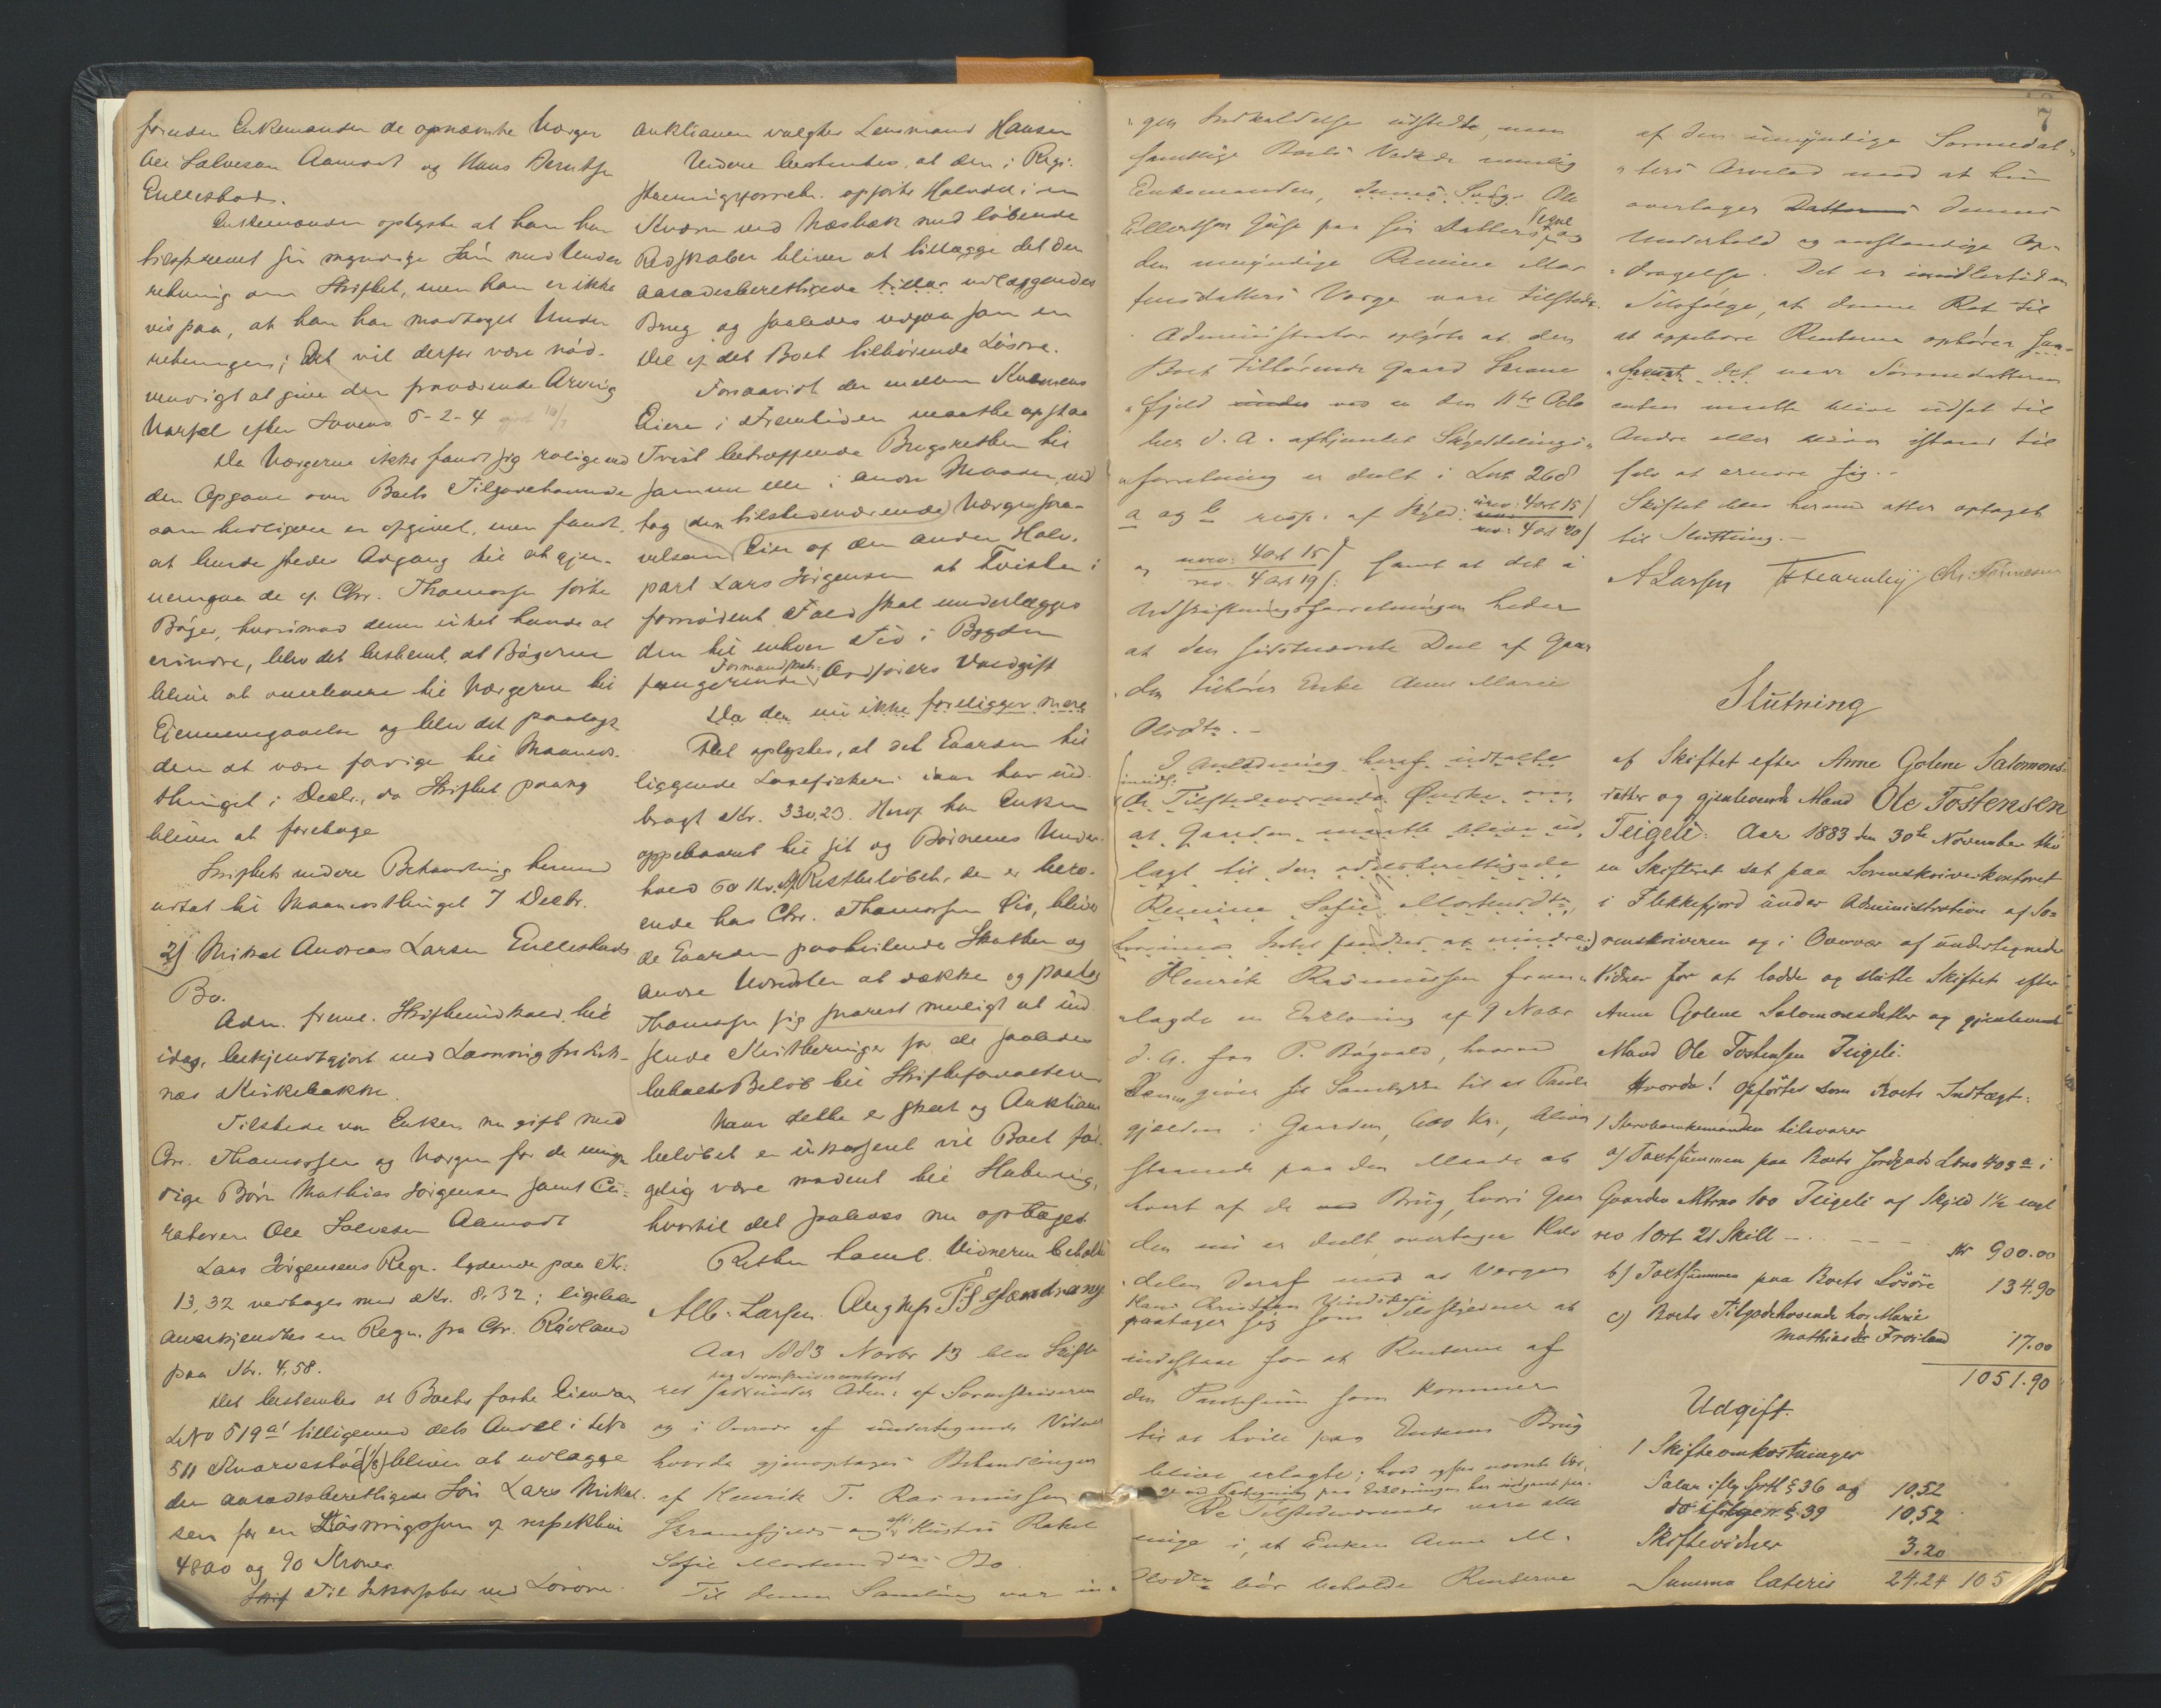 foruden Enkemanden de opnævnte Værger
Ole Salvesen Aamodt og Hans Berntsen
Eullestad.
Enkemanden oplyste at han har
tilskrevet sin myndige Søn med Under
retning om Skiftet, men han er ikke
vis paa, at han har modtaget Under
retningen; Det vil derfor være nød-
vendigt at give den fraværende Arving
Varsel efter Lovens 5-2-4
Da Værgerne ikke fandt sig rolige ved
den Opgave over Boets Tilgodehavende
som tidligere er opgivet, men fandt,
at burde stedes Adgang til at gjen-
nemgaa de af Chr. Thomassen førte
Bøger, hvorimod denne intet havde at
erindre, blev det bestemt, at Bøgerne
bliver at overlevere til Værgerne til
Gjennemgaaelse og blev det paalagt
dem at være færdige til Maaneds-
thinget i Decbr., da Skiftet paany
bliver at foretage
Skiftets videre Behandling herved
udsat til Maanedsthinget 7 Decbr.
2) Mikal Andreas Larsen Eullestads
Bo.
Adm. freml. Skifteindkald. til
idag, bekjendtgjort ved Læsning fra Lik-
næs Kirkebakke.
Tilstede var Enken nu gift med
Chr. Thomassen og Værgen for de umyn
dige Børn Mathias Jørgensen samt Cu-
ratoren Ole Salvesen Aamodt
Lars Jørgensens Regn. lydende paa Kr.
13,32 vedtages med Kr. 8,32; ligeledes
anerkjendtes en Regn. fra Chr. Rødland
paa Kr. 4,58.
Det bestemtes at Boets faste Eiendom
LNo 519 a1 tilligemed dets Andel i LNo
511 Kvarvestød (1/8) bliver at udlægge
den aasædesberettigede Søn Lars Mikal-
sen for en Løsningssum af respektive
4800 og 90 Kroner.
Skif Til Inkassator ved Løsøre-
auktionen valgtes Lensmand Hansen
Videre bestemtes, at den i Regi-
streringsforretn. opførte Halvdel i en
Kværn ved Næsbæk med løbende
Redskaber bliver at tillægge det den
aasædesberettigede tillar udlæggendes
Brug og saaledes udgaa som en
Del af det Boet tilhørende Løsøre.
Forsaavidt der mellem Kværnens
Eiere i Fremtiden maatte opstaa
Tvist betræffende Brugsretten til
samme eller i andre Maader, ved
tog den tilstedeværende Værge saa-
velsom Eier af den anden Halv-
part Lars Jørgensen at Tvisten i
fornødent Fald skal underlægges
den til enhver Tid i Bygden
Formandskabs-
fungerende Ordførers Voldgift
Da der nu ikke foreligger mere
Det oplystes, at det Gaarden til
liggende Laxefiskeri iaar har ind
bragt Kr. 330,23. Heraf har Enken
oppebaaret til sit og Børnenes Under-
hold 60 Kr. Af Restbeløbet, der er bero-
ende hos Chr. Thomassen Lie, bliver
de Gaarden paahvilende Skatter og
andre Udredsler at dække og paatog
Thomassen sig snarest muligt at ind
sende Kvitteringer for de saaledes
betalte Beløb til Skifteforvalteren
Naar dette er skeet og Auktions
beløbet er inkasseret vil Boet føl-
gelig være modent til Slutning,
hvortil det saaledes nu optages
Retten hævet. Vidnerne betalt
Alb. Larsen. Aug Aas TS Gslandvang
Aar 1883 Novbr 13 blev Skifte
paa Sorenskriverkontoret
ret sat under Adm: af Sorenskriveren
og i Overvær af undertegnede Vidner
hvorda gjenoptages Behandlingen
af Henrik T. Rasmussen
Skranefjeld og afd. Hustru Rakel
Sofie Mortensdtrs Bo
Til denne Samling var in-
gen Indkaldelse udstedt, men
samtlige Boets Vedkde nemlig
Enkemanden, dennes Svigr. Ole
Ellertsen Gaase paa sin Datters Vegne og
den umyndige Remine Mor
tensdatters Værge vare tilstede.
Administrator oplyste at den
Boet tilhørende Gaard Skrane
fjeld under ved en den 11te Octo
ber d. A. afhjemlet Skylddelings-
forretning er deelt i LNo 268
a og b resp. af Skyld: urev: 4 ort 15 /
rev: 4 ort 20 /
og urev: 4 ort 15 /
rev: 4 ort 19 /: samt at det i
Udskiftningsforretningen heder
at den sidstnævnte Deel af Gaar
den tilhører Enke Anne Marie
Olsdtr. -
I Anledning heraf udtalte
imidl.
de Tilstedeværende Ønske om,
at Gaarden maatte blive ud
lagt til den odelsberettigede
Remine Sofie Mortensdtr,
hvorimod Intet fandtes at erindre.
Henrik Rasmussen frem-
lagde en Erklæring af 9 Novbr
d. A. fra P. Bøgvald, hvorved
denne giver sit Samtykke til at Pante
gjælden i Gaarden, 600 Kr., bliver
staaende paa den Maade at
hvert af de ved Brug, hvori Gaar
den nu er deelt, overtager Halv
delen deraf med at Værgen
Hans Christian Vindsland
paatager sig som Selvskyldner at
indestaae for at Renterne af
den Pantesum som kommer
til at hvile paa Enkens Brug
blive erlagte; hvad ogsaa nævnte Vær-
ge ved Paategning paa Erklæringen har indgaaet paa.
De Tilstedeværende vare alle
enige i, at Enken Anne M.
Olsdtr bør beholde Renterne
7
af den umyndige Sønnedat
ters Arvelod mod at hun
overtager Datterens dennes
Underhold og anstændige Op-
dragelse. Det er imidlertid en
Selvfølge, at denne Ret til
at oppebære Renterne ophører saa-
snart det naar Sønnedatteren
enten maatte blive udsat til
Andre eller bliver istand til
selv at ernære sig. -
Skiftet blev herved atter optaget
til Slutning. -
A Larsen T Hearnley Chr. Tønnesen
Slutning
af Skiftet efter Anne Golene Salomons-
datter og gjenlevende Mand Ole Tostensen
Teigeli. Aar 1883 den 30te November blev
en Skifteret sat paa Sorenskriverkontoret
i Flekkefjord under Administration af So-
renskriveren og i Overvær af undertegnede
Vidner for at lodde og slutte Skiftet efter
Anne Golene Salomonsdatter og gjenlevende
Mand Ole Tostensen Teigeli.
Hvorda! opførtes som Boets Indtægt:
1 Stervboenkemanden tilsvarer
a) Taxtsummen paa Boets Jordgods Lbno 403 a i
Gaarden Mtrno 100 Teigeli af Skyld 1½ engl
rev 1 ort 21 Skill - . - - - Kr 900.00
b) Taxtsummen paa Boets Løsøre 134.90
c) Boets Tilgodehavende hos Marie
Mathiasdtr Frøiland 17.00
1051.90
Udgift.
1 Skifteomkostninger
Salær iflg Sptl § 36 og 10.52
do ifølge " § 39 10.52
Skiftevidner 3.20
Summa lateris 24.24 105